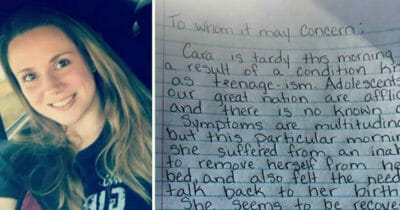 To whom it may concern:
Cara is tardy this morning
a result of a condition
as teenage-ism. Adolescents
our great nation are
and there is no known
Symptoms are
but this particular
she suffered from an
to remove herself from
bed, and also felt the need
talk back to her
She seems to be